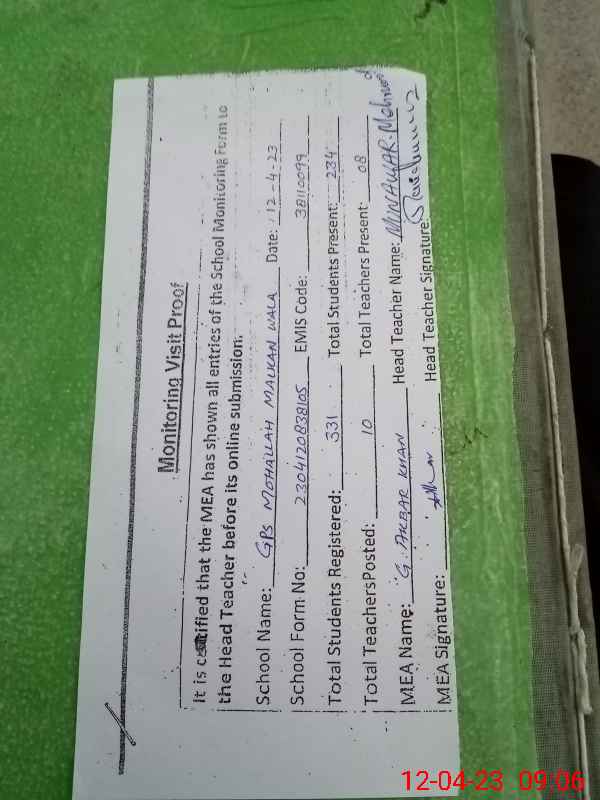 Monitoring Visit Proof
It is certified that the MEA has shown all entries of the School Monitoring Form to
the Head Teacher before its online submission.
School Name: GPS MOHALLAH MALKAN WALA Date: 12-4-23
School Form No: 2304120838105 EMIS Code: 38110099
Total Students Registered: 331 Total Students Present: 234
Total Teachers Posted: 10 Total Teachers Present: 08
MEA Name: G. AKBAR KHAN Head Teacher Name: MUNAWAR Mehmood
MEA Signature: Head Teacher Signature:
12-04-23 09:06